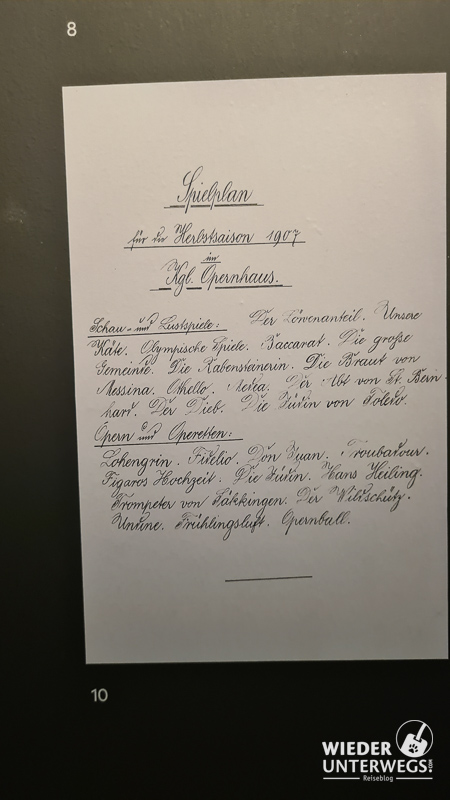 8
Spielplan
für die Herbstsaison 1907
im
Kgl. Opernhaus.
Schau- und Lustspiele: Der Löwenanteil. Unsere
Käte. Olympische Spiele. Baccarat. Die große
Gemeinde. Die Rabensteinerin. Die Braut von
Messina. Othello. Medea. Der Abt von St. Bern-
hard. Der Dieb. Die Jüdin von Toledo.
Opern und Operetten:
Lohengrin. Fidelio. Don Juan. Troubadour.
Figaros Hochzeit. Die Jüdin. Hans Heiling.
Trompeter von Säkkingen. Der Wildschütz.
Undine. Frühlingsluft. Opernball.
10
WIEDER
UNTERWEGS.COM
Reiseblog